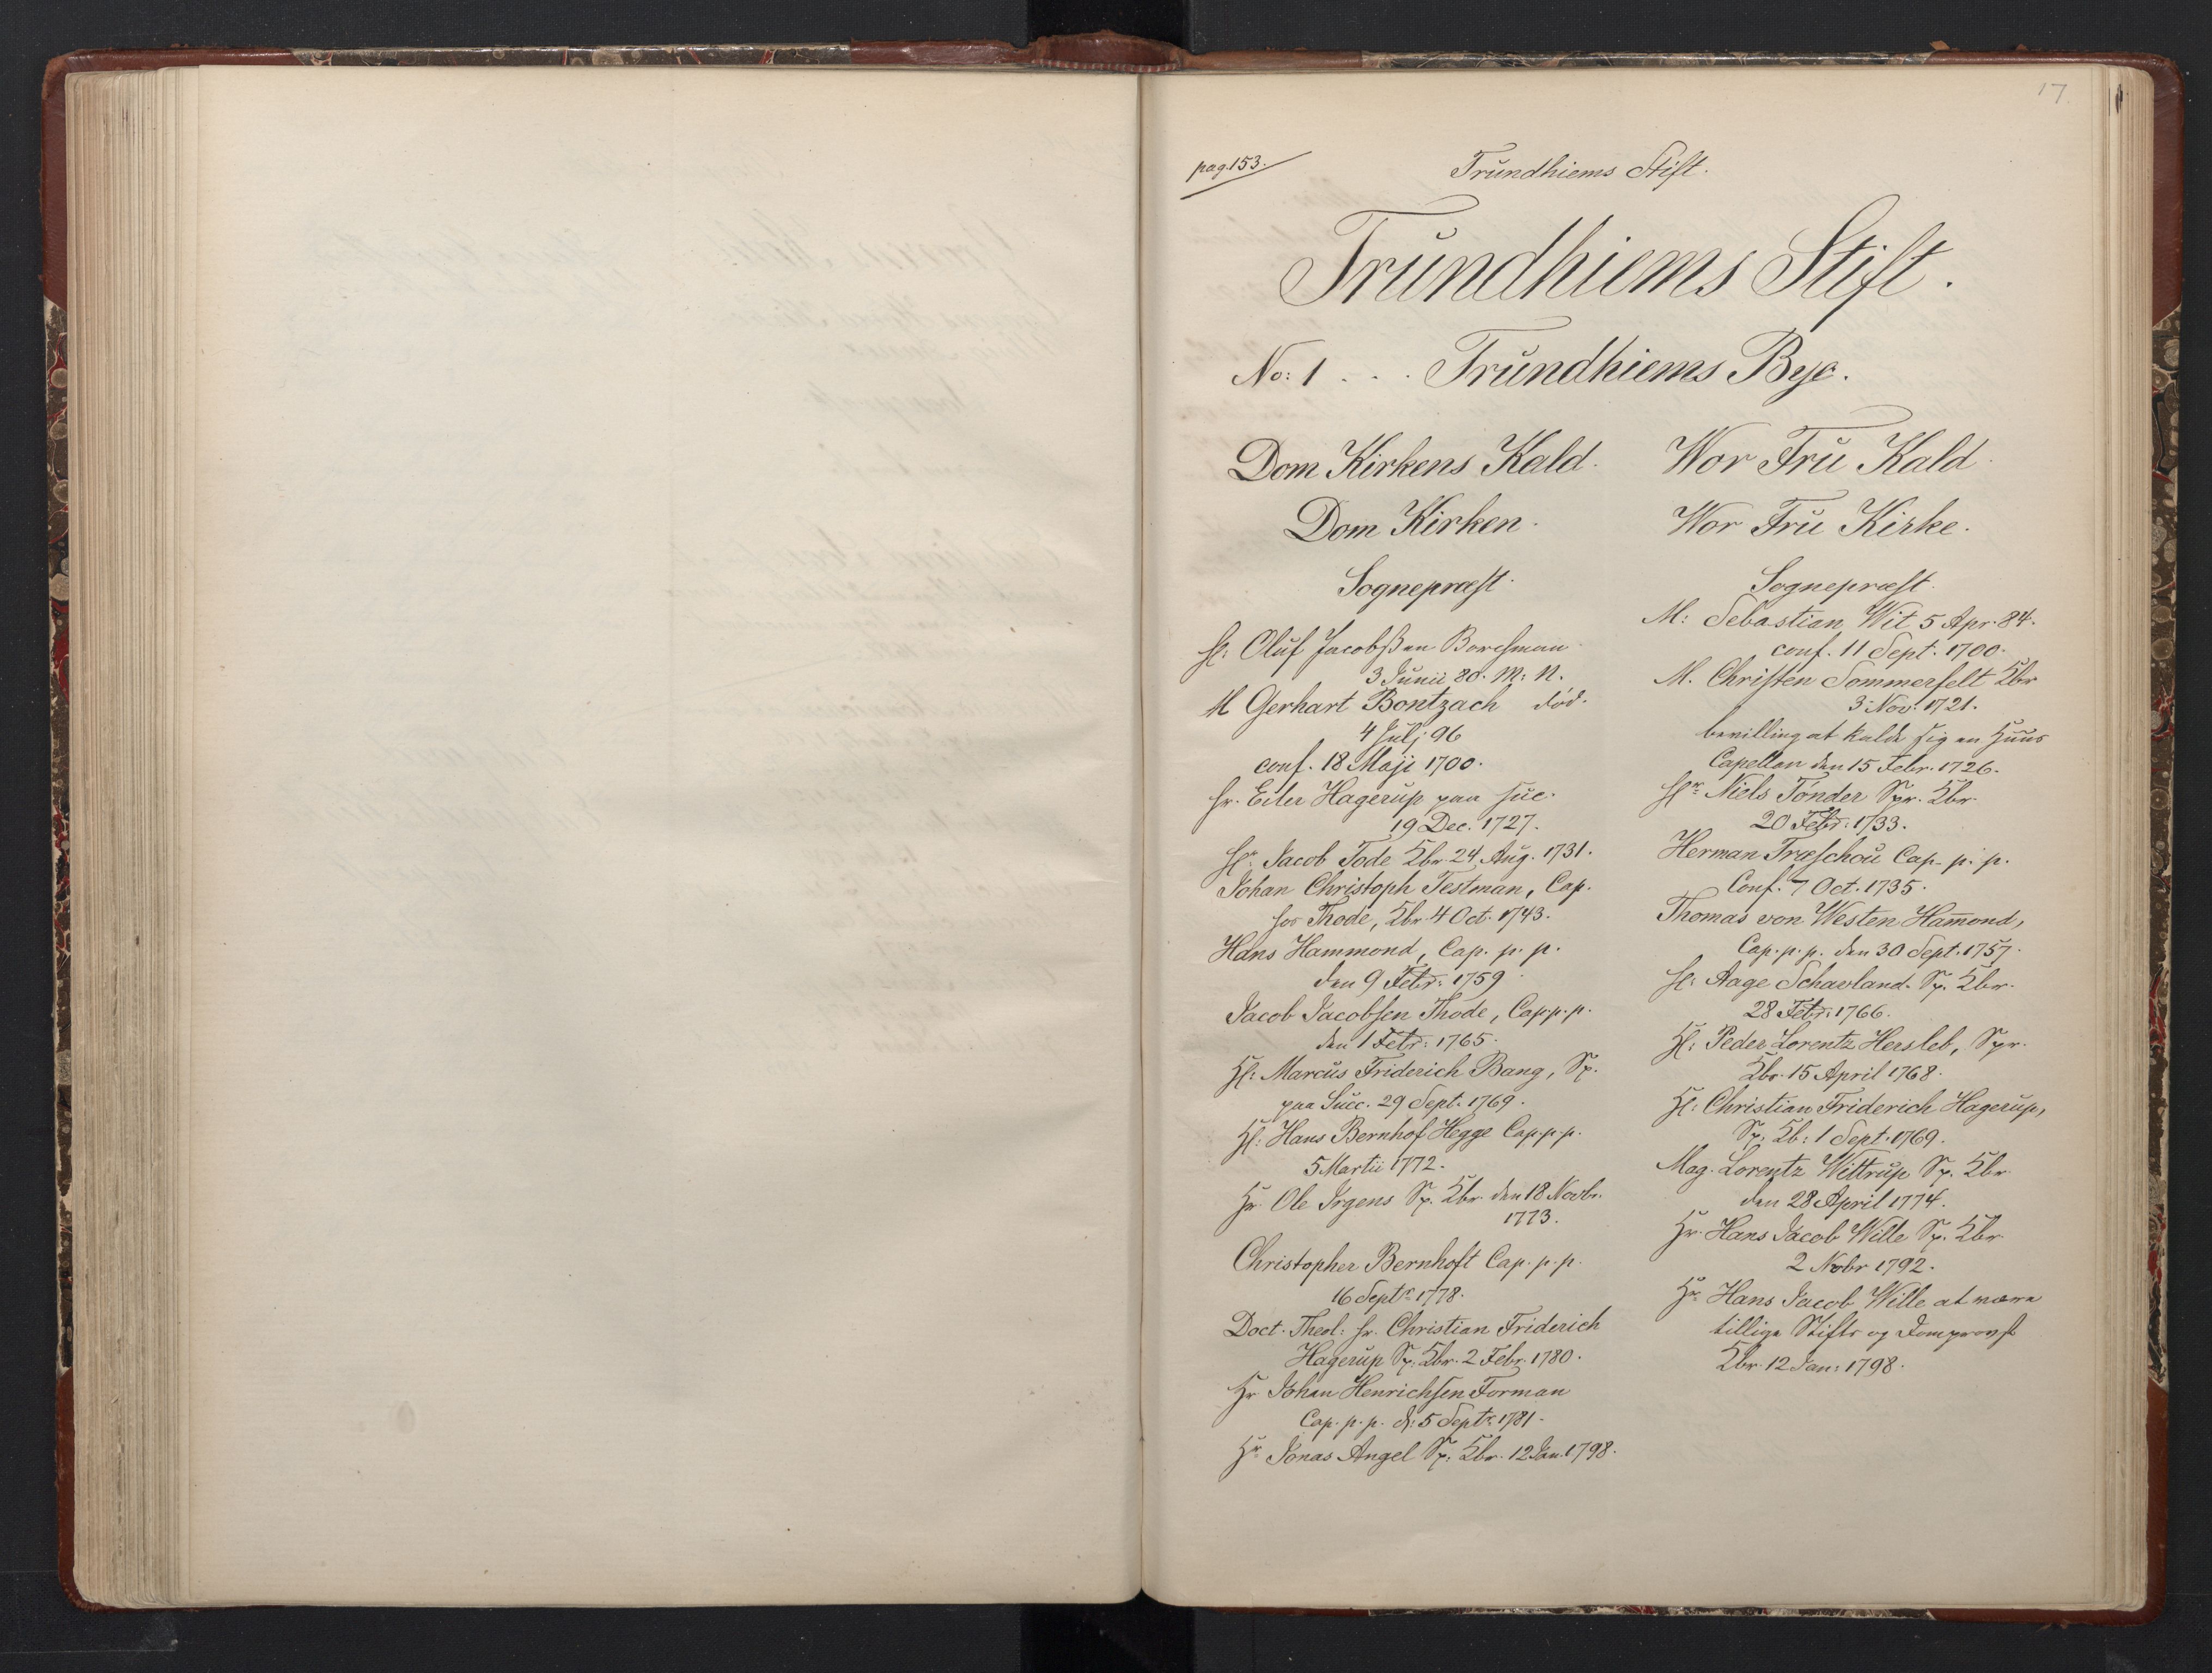 17.
pag. 153.
Trundhiems Stift.
Trundhiems Stift.
No: 1 . . . Trundhiems Bye.
Dom Kirkens Kald.
Dom Kirken.
Sognepræst.
Hl: Oluf Jacobsßen Borchman
3 Junii 80. M: N.
M Gerhart Bontzach död.
4 Julj 96
conf. 18 Maji 1700.
Hr. Eiler Hagerup paa suc.
19 Dec. 1727.
Hr. Jacob Tode Kbr. 24 Aug. 1731.
Johan Christoph Testman, Cap.
hos Thode, Kbr 4 Oct. 1743.
Hans Hammond, Cap. p. p.
den 9 Febr: 1759.
Jacob Jacobsen Thode, Cap. p. p.
den 1 Febr: 1765.
Hl: Marcus Friderich Bang, Sp.
paa Succ. 29 Sept. 1769.
Hl: Hans Bernhof Hegge Cap. p. p.
5 Martii 1772.
Hr. Ole Irgens Sp. Kbr. den 18 Novbr.
1773.
Christopher Bernhoft Cap. p. p.
16 Septr. 1778.
Doct. Theol: Hr. Christian Friderich
Hagerup Sp. Kbr. 2 Febr. 1780.
Hr Johan Henrichsen Forman
Cap. p. p. d: 5 Septr. 1781.
Hr. Jonas Angel Sp: Kbr. 12 Jan. 1798.
Wor Fru Kald.
Wor Fru Kirke.
Sognepræst.
M: Sebastian Wit 5 Apr. 84.
conf. 11 Sept. 1700.
M. Christen Sommerfelt Kbr
3 Nov. 1721.
bevilling at kalde sig en Huus
Capellan den 15 Febr. 1726.
Hr. Niels Tønder Spr. Kbr.
20 Febr: 1733.
Herman Træschou Cap. p. p.
Conf. 7 Oct. 1735.
Thomas von Westen Hamond,
Cap. p. p. den 30 Sept. 1757.
Hl: Aage Schavland. Sp. Kbr.
28 Febr: 1766.
Hl: Peder Lorentz Hersleb, Spr.
Kbr. 15 April 1768.
Hl: Christian Friderich Hagerup,
Sp: Kb: 1 Sept. 1769.
Mag. Lorentz Wittrup Sp. Kbr.
den 28 April 1774.
Hr. Hans Jacob Wille Sp. Kbr
2 Nobr 1792.
Hr. Hans Jacob Wille at være
tillige Stifts og Domprovst
Kbr. 12 Jan: 1798.